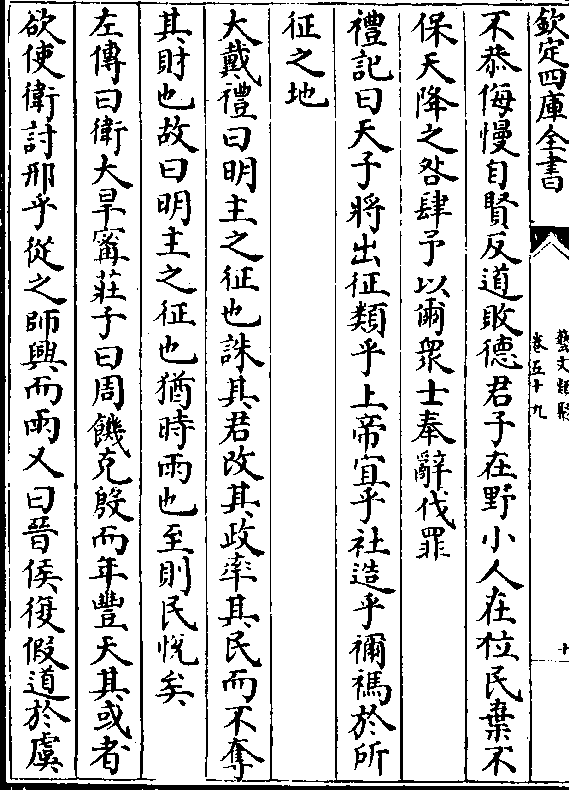 欽定四庫全書
藝文類聚
卷五十九
十
不恭侮慢自賢反道敗德君子在野小人在位民棄不
保天降之咎肆予以爾衆士奉辭伐罪
禮記曰天子將出征類乎上帝宜乎社造乎禰禡於所
征之地
大戴禮曰明主之征也誅其君改其政率其民而不奪
其財也故曰明主之征也猶時雨也至則民恱矣
左傳曰衛大旱甯莊子曰周饑克殷而年豐天其或者
欲使衛討邢乎從之師興而雨又曰晉侯復假道於虞